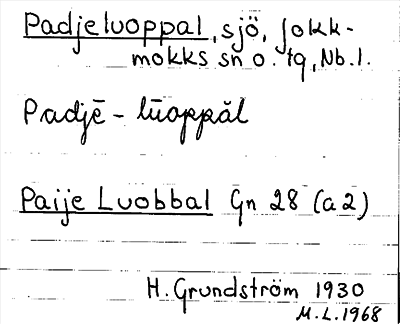 Padjeluoppal, sjö, Jokk-
mokks sn o. tg, Nb. l.
Padjē - lūoppăl
Paije Luobbal Gn 28 (a2)
H. Grundström 1930
M.L. 1968